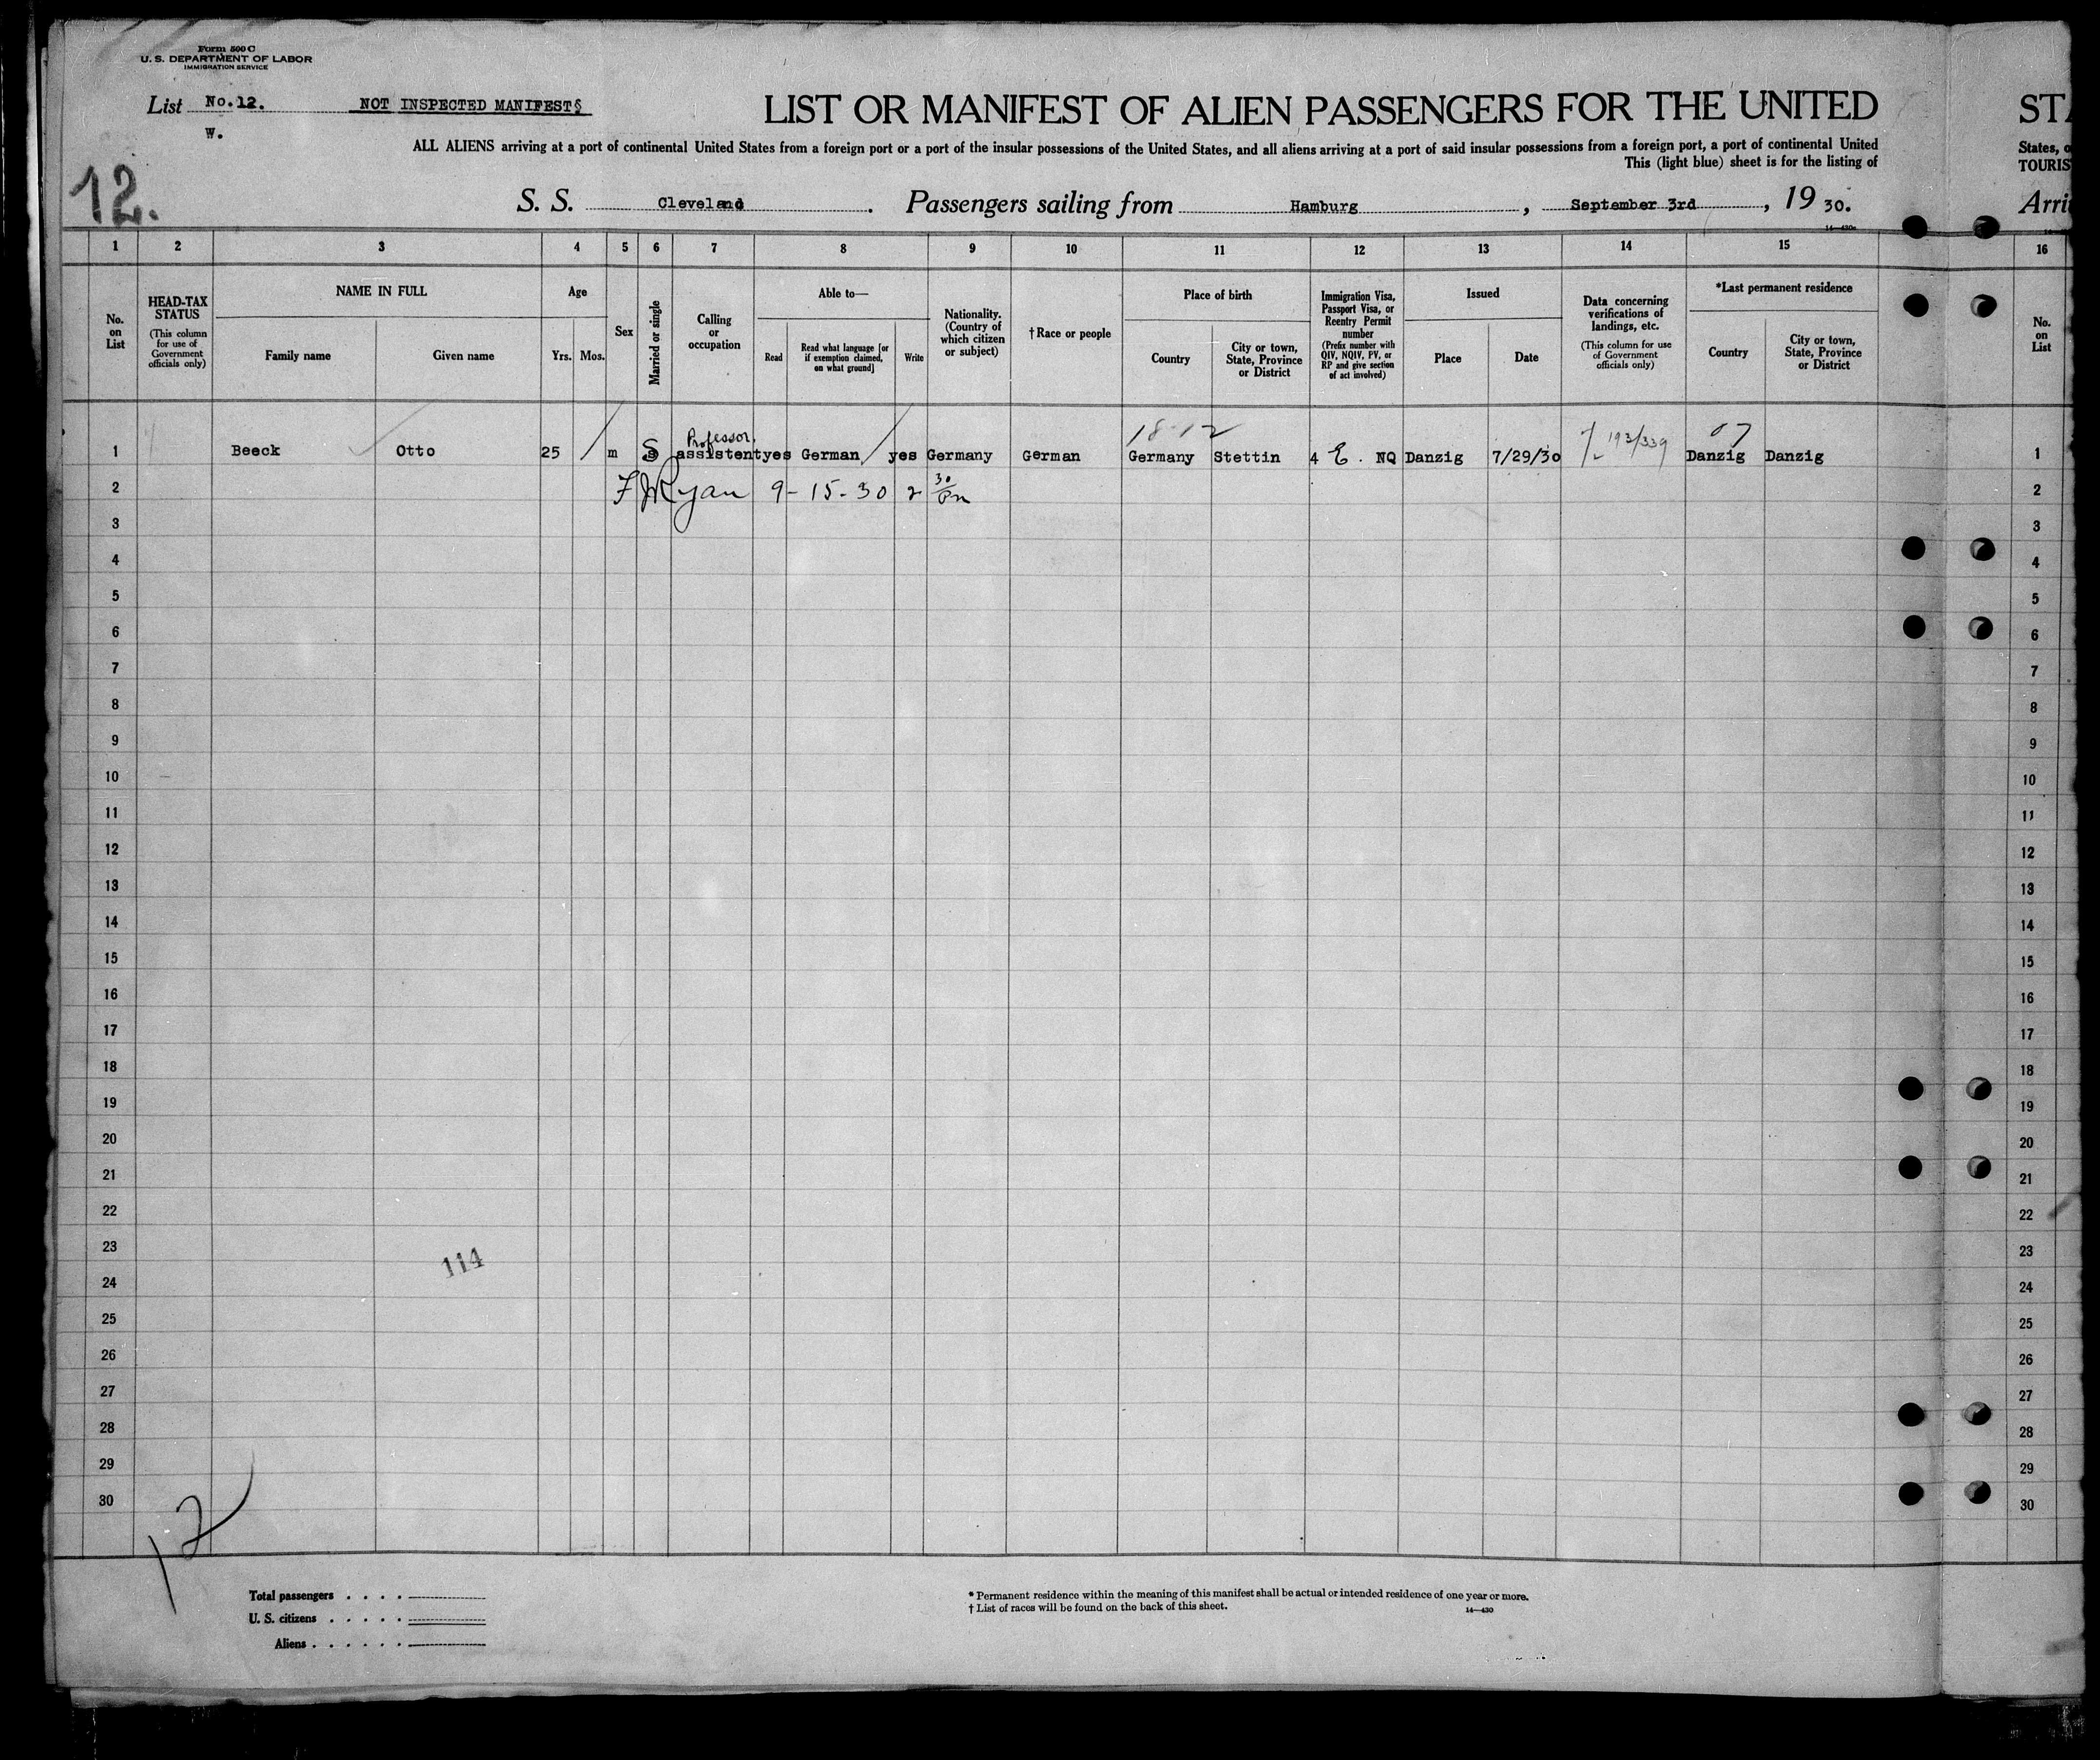 Form 500 C
U. S. DEPARTMENT OF LABOR
IMMIGRATION SERVICE
List No.12. NOT INSPECTED MANIFESTS
W.
12.
LIST OR MANIFEST OF ALIEN PASSENGERS FOR THE UNITED
ALL ALIENS arriving at a port of continental United States from a foreign port or a port of the insular possessions of the United States, and all aliens arriving at a port of said insular possessions from a foreign port, a port of continental United
This (light blue) sheet is for the listing of
S. S. Cleveland. Passengers sailing from Hamburg, September 3rd, 19 30.
14-430a
STA
States, o
TOURIS
Arri
1 2 3 4 5 6 7 8 9 10 11 12 13 14 15 16
No. on List
HEAD-TAX STATUS
(This column for use of Government officials only)
NAME IN FULL
Family name Given name
Age
Yrs. Mos.
Sex
Married or single
Calling or occupation
Able to—
Read
Read what language [or if exemption claimed, on what ground]
Write
Nationality. (Country of which citizen or subject)
†Race or people
Place of birth
Country
City or town, State, Province or District
Immigration Visa, Passport Visa, or Reentry Permit number
(Prefix number with QIV, NQIV, PV, or RP and give section of act involved)
Issued
Place Date
Data concerning verifications of landings, etc.
(This column for use of Government officials only)
*Last permanent residence
Country
City or town, State, Province or District
No. on List
Professor. 18-12 193/339 07
1 Beeck Otto 25 m S assistent yes German yes Germany German Germany Stettin 4 E. NQ Danzig 7/29/30 Danzig Danzig 1
2 F J Ryan 9-15-30 2 30/Pm 2
3 3
4 4
5 5
6 6
7 7
8 8
9 9
10 10
11 11
12 12
13 13
14 14
15 15
16 16
17 17
18 18
19 19
20 20
21 21
22 22
23 23
114
24 24
25 25
26 26
27 27
28 28
29 29
30 30
12
Total passengers . . . .
U. S. citizens . . . . .
Aliens . . . . . .
* Permanent residence within the meaning of this manifest shall be actual or intended residence of one year or more.
† List of races will be found on the back of this sheet. 14-430